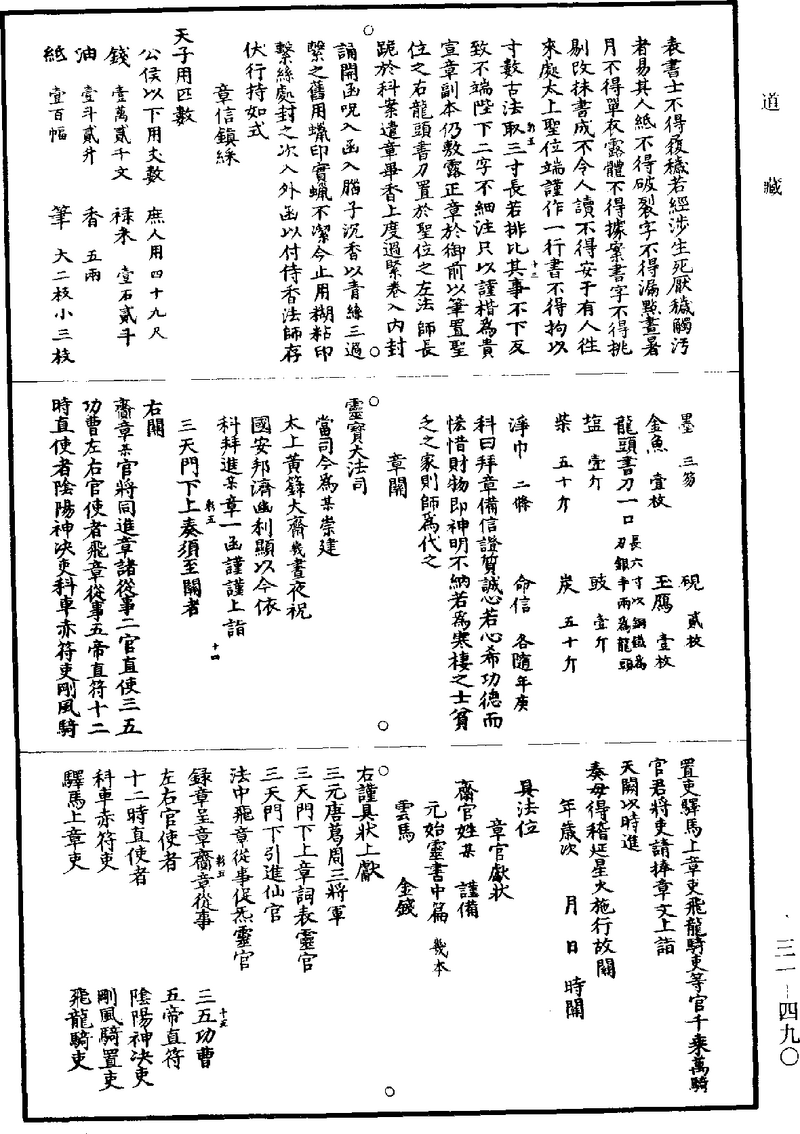 道藏
表書士不得履穢若經涉生死厭穢觸污
者易其人紙不得破裂字不得漏點晝暑
月不得單衣露體不得據案書字不得挑
剔改抹書成不令人讀不得安于有人往
來處太上聖位端謹作一行書不得拘以
寸數古法取三寸長若排比其事不下及
致不端陛下二字不細注只以謹楷為貴
宣章副本仍敷露正章於御前以筆置聖
位之右龍頭書刀置於聖位之左法師長
跪於科案遣章畢香上度過緊卷入內封
誦開函呪入函入腦子沉香以青絲三過
繫之舊用蠟印實蠟不潔今止用糊粘印
繫絲處封之次入外函以付侍香法師存
伏行持如式
章信鎮綵
天子用匹數
公侯以下用丈數 庶人用四十九尺
錢 壹萬貳千文 祿米 壹石貳斗
油 壹斗貳升 香 五兩
紙 壹百幅 筆 大二枝小三枝
墨 三笏 硯 貳枚
金魚 壹枚 玉鴈 壹枚
龍頭書刀一口 長六寸以鋼鐵為刃銀半兩為龍頭
塩 壹斤 豉 壹斤
柴 五十斤 炭 五十斤
淨巾 二條 命信 各隨年庚
科曰拜章備信證質誠心若心希功德而
悋惜財物即神明不納若為寒棲之士貧
乏之家則師為代之
章關
靈寶大法司
當司今為某崇建
太上黃籙大齋幾晝夜祝
國安邦濟幽利顯以今依
科拜進某章一函謹謹上詣
三天門下上奏須至關者
右關
齎章某官將同進章諸從事二官直使三五
功曹左右官使者飛章從事五帝直符十二
時直使者陰陽神決吏科車赤符吏剛風騎
置吏驛馬上章吏飛龍騎吏等官千乘萬騎
官君將吏請捧章文上詣
天闕以時進
奏毋得稽延星火施行故關
年歲次 月 日 時關
具法位
章官獻狀
齋官姓某 謹備
元始靈書中篇 幾本
雲馬 金錢
右謹具狀上獻
三元唐葛周三將軍
三天門下上章詞表靈官
三天門下引進仙官
法中飛章從事促炁靈官
錄章呈章齎章從事 三五功曹
左右官使者 五帝直符
十二時直使者 陰陽神決吏
科車赤符吏 剛風騎置吏
驛馬上章吏 飛龍騎吏
三一—四九〇